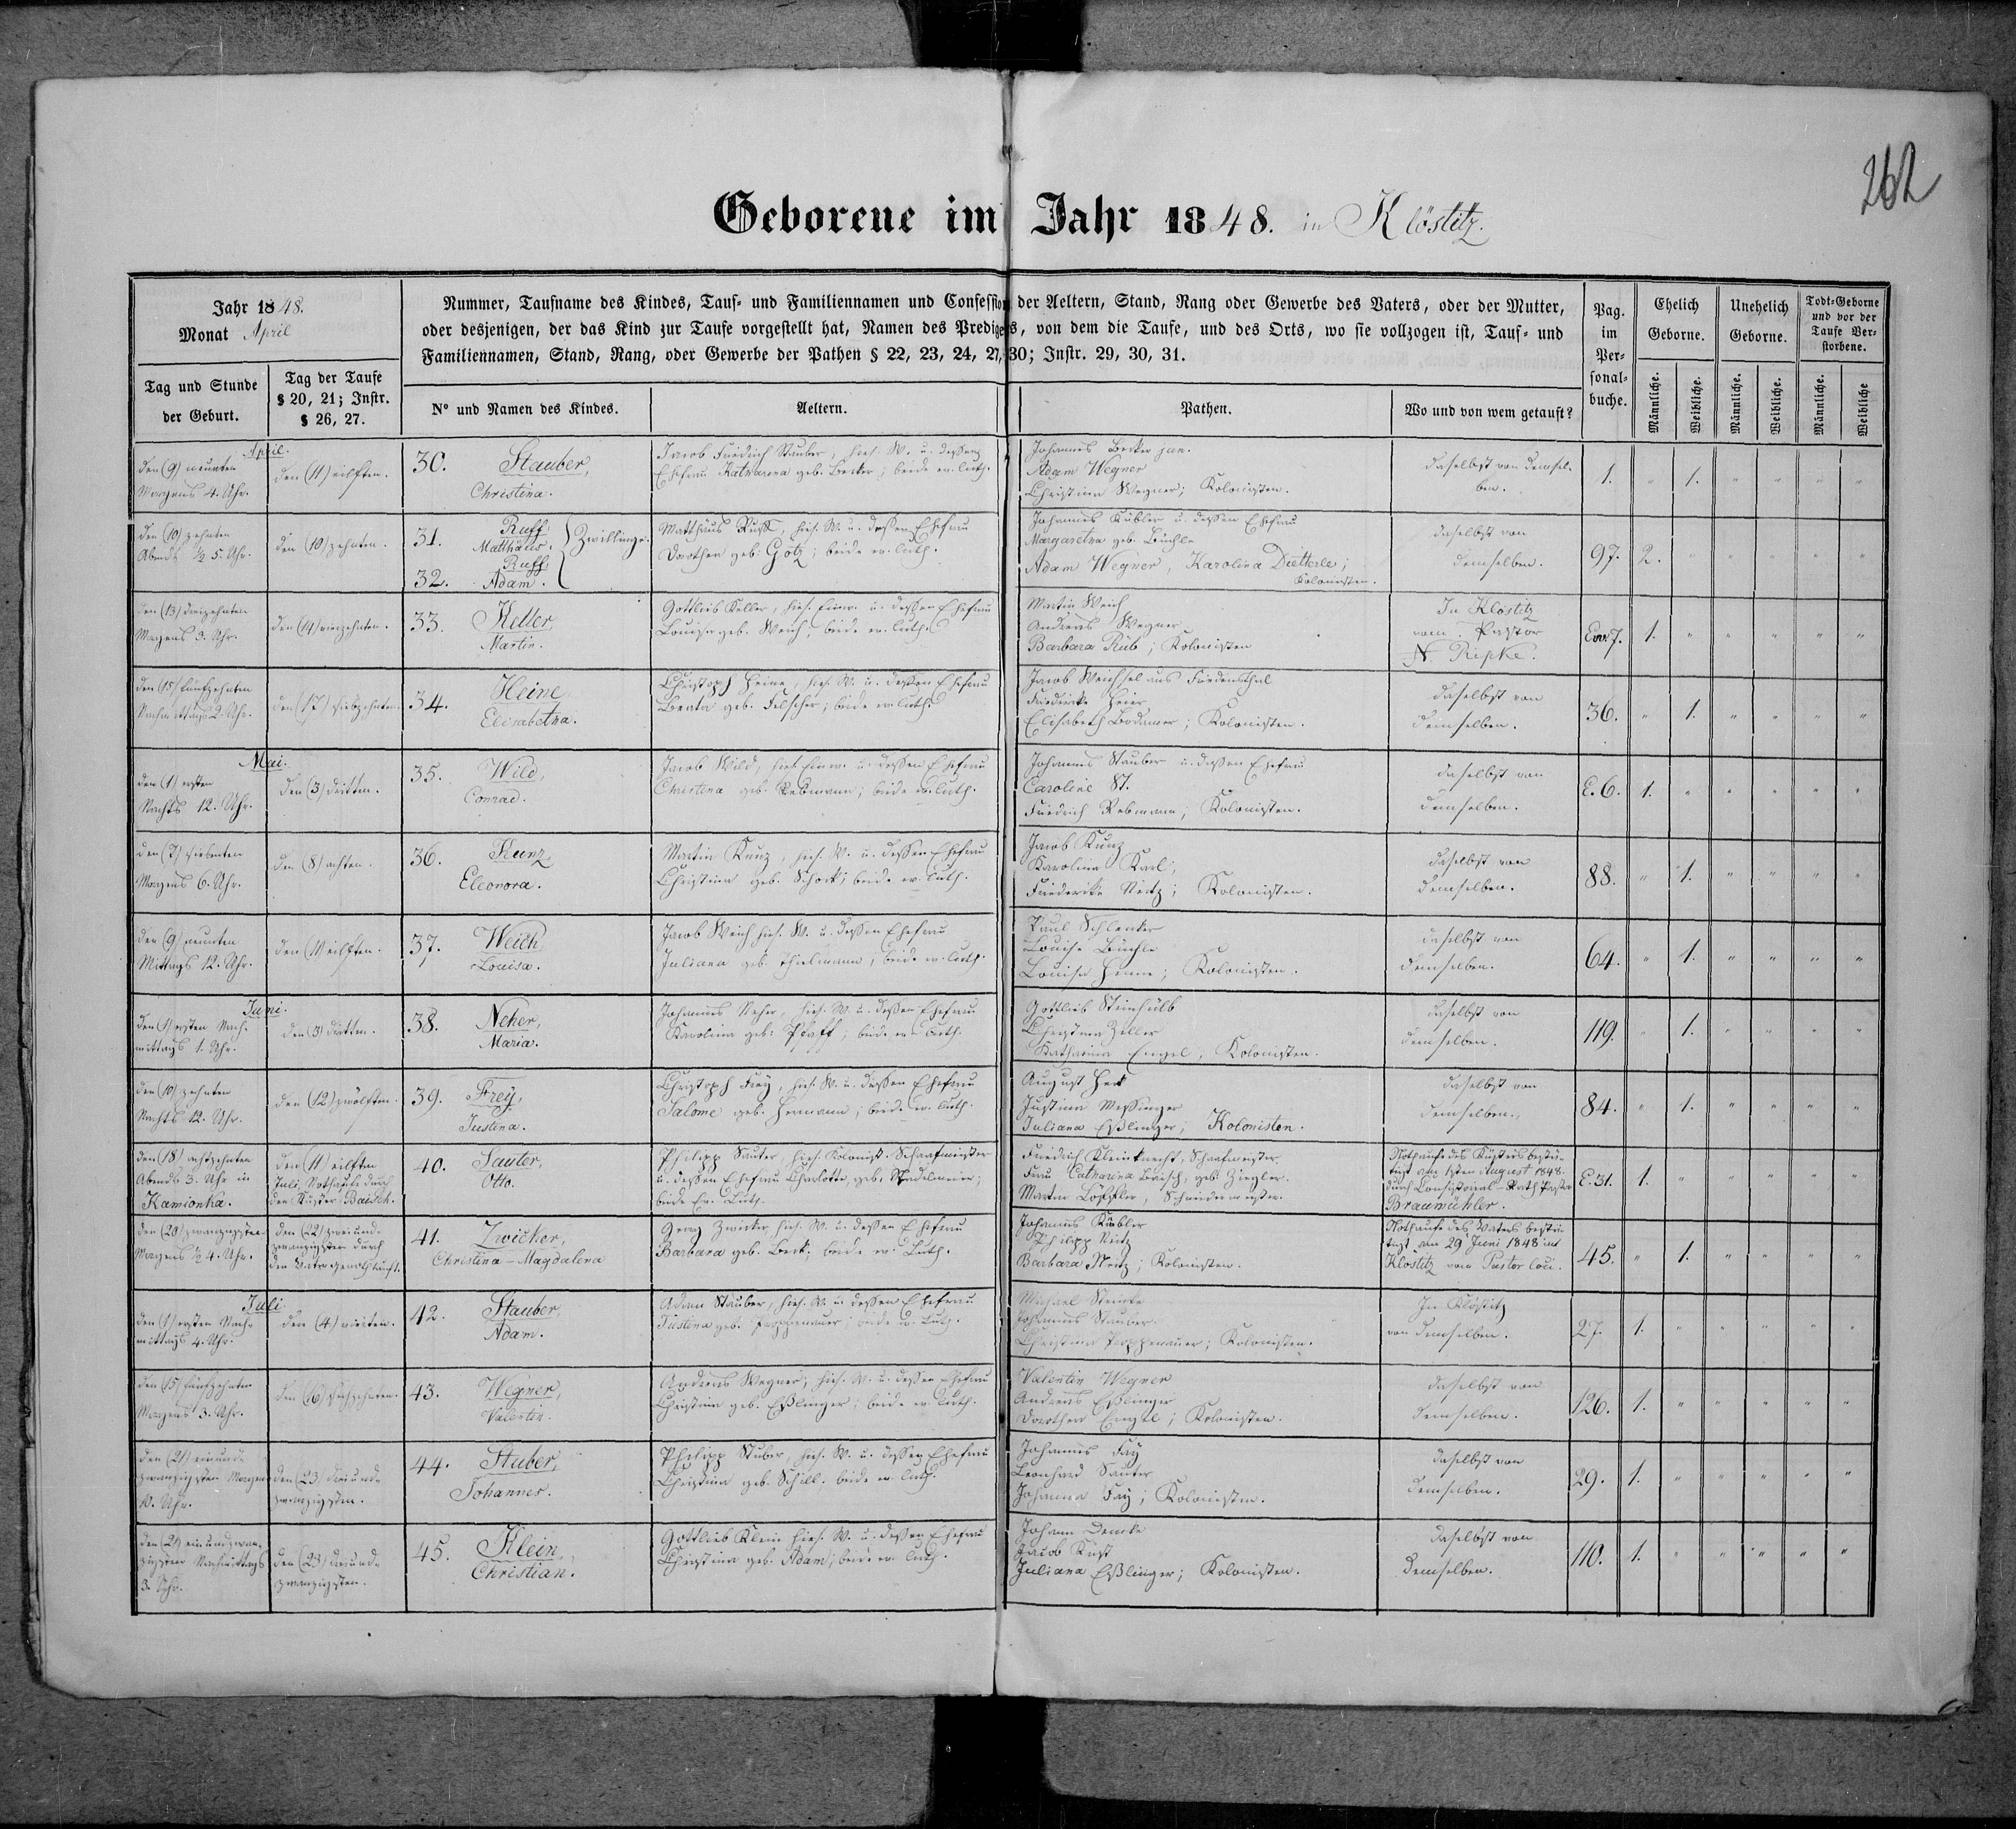 262
Geborene im Jahr 1848. in Klöstitz.
Jahr 1848.
Monat April
Nummer, Taufname des Kindes, Tauf- und Familiennamen und Confession der Aeltern, Stand, Rang oder Gewerbe des Vaters, oder der Mutter,
oder desjenigen, der das Kind zur Taufe vorgestellt hat, Namen des Predigers, von dem die Taufe, und des Orts, wo sie vollzogen ist, Tauf- und
Familiennamen, Stand, Rang, oder Gewerbe der Pathen § 22, 23, 24, 27, 30; Instr. 29, 30, 31.
Pag. im Personalbuche.
Ehelich Geborne.
Unehelich Geborne.
Todt-Geborne und vor der Taufe Verstorbene.
Tag und Stunde der Geburt.
Tag der Taufe § 20, 21; Instr. § 26, 27.
N° und Namen des Kindes.
Aeltern.
Pathen.
Wo und von wem getauft?
Männliche. Weibliche. Männliche. Weibliche. Männliche. Weibliche
April.
den (9) neunten
Morgens 4. Uhr.
den (11) eilften.
30. Stauber,
Christina.
Jacob Friedrich Stauber, hies. W. u. dessen
Ehefrau Katharina geb. Becker; beide ev. luth.
Johannes Becker jun.
Adam Wegner
Christina Wegner; Kolonisten.
daselbst von demsel-
ben.
1. " 1. " " " "
den (10) zehnten
Abends ½ 5. Uhr.
den (10) zehnten.
31. Ruff
Matthäus.
32. Ruff
Adam.
Zwillinge.
Matthäus Ruff, hies. W. u. dessen Ehefrau
Dorothea geb. Götz; beide ev. luth.
Johannes Kübler u. dessen Ehefrau
Margaretha geb. Büchle
Adam Wegner, Karolina Dietterle;
Kolonisten.
daselbst von
demselben.
97. 2. " " " " "
den (13) dreizehnten
Morgens 3. Uhr.
den (14) vierzehnten.
33. Keller,
Martin.
Gottlieb Keller, hies. Einw. u. dessen Ehefrau
Louisa geb. Weich; beide ev. luth.
Martin Weich
Andreas Wegner
Barbara Rüb; Kolonisten
In Klöstitz
vom Pastor
N. Pipke.
1. " " " " "
den (15) fünfzehnten
Nachmittags 2. Uhr.
den (17) siebzehnten.
34. Heine,
Elisabetha.
Christoph Heine, hies. W. u. dessen Ehefrau
Beata geb. Felscher; beide ev. luth.
Jacob Weichsel aus Friedensthal
Elisabeth Bodamer; Kolonisten.
daselbst von
demselben.
36. " 1. " " " "
Mai.
den (1) ersten
Nachts 12. Uhr.
den (3) dritten.
35. Wild,
Conrad.
Jacob Wild, hies. Einw. u. dessen Ehefrau
Christina geb. Rebmann; beide ev. luth.
Johannes Stauber u. dessen Ehefrau
Caroline St.
Friedrich Rebmann; Kolonisten.
daselbst von
demselben.
E. 6. 1. " " " " "
den (7) siebenten
Morgens 6. Uhr.
den (8) achten.
36. Kunz,
Eleonora.
Martin Kunz, hies. W. u. dessen Ehefrau
Christina geb. Schock; beide ev. luth.
Jacob Kunz
Karolina Karl;
Friederike Neitz; Kolonisten.
daselbst von
demselben.
88. " 1. " " " "
den (9) neunten
Mittags 12. Uhr.
den (11) eilften.
37. Weich,
Louisa.
Jacob Weich hies. W. u. dessen Ehefrau
Juliana geb. Thielmann; beide ev. luth.
Paul Schlenker
Louise Büchle
Louisa Heine; Kolonisten.
daselbst von
demselben.
64. " 1. " " " "
Juni.
den (1) ersten Nach-
mittags 1. Uhr.
den (3) dritten.
38. Neher,
Maria.
Johannes Neher, hies. W. u. dessen Ehefrau
Karolina geb. Pfaff; beide ev. luth.
Gottlieb Steinhülb
Christina Zeller
Katharina Engel; Kolonisten.
daselbst von
demselben.
119. " 1. " " " "
den (10) zehnten
Nachts 12. Uhr.
den (12) zwölften.
39. Frey,
Justina.
Christoph Frey, hies. W. u. dessen Ehefrau
Salome geb. Hermann; beide ev. luth.
August Heck
Justina Messinger
Juliana Eßlinger; Kolonisten.
daselbst von
demselben.
84. " 1. " " " "
den (18) achtzehnten
Abends 3. Uhr in
Kamionka.
den (11) eilften
Juli, Nothtaufe durch
den Küster Baisch.
40. Sauter,
Otto.
Philipp Sauter, hies. Kolonist. Schaafmeister
u. dessen Ehefrau Charlotte, geb.
beide Ev. Luth.
Friedrich Kleinknecht, Schaafmeister
Frau Catharina Baisch, geb. Ziegler.
Martin Löffler, Schneidermeister.
Nothtaufe des Küsters bestä-
tigt am 1sten August 1848.
durch Consistorial-Rath Pastor
Braumühler.
E. 31. 1. " " " " "
den (20) zwanzigsten
Morgens ½ 4. Uhr.
den (22) zweiund-
zwanzigsten durch
den Vater genothtauft.
41. Zwicker,
Christina-Magdalena
Georg Zwicker, hies. W. u. dessen Ehefrau
Barbara geb. Beck; beide ev. Luth.
Johannes Kübler
Philipp Neitz
Barbara Neitz; Kolonisten.
Nothtaufe des Vaters bestä-
tigt am 29 Juni 1848 in
Klöstitz vom Pastor loci.
45. " 1. " " " "
Juli.
den (1) ersten Nach-
mittags 4. Uhr.
den (4) vierten.
42. Stauber,
Adam.
Adam Stauber, hies. W. u. dessen Ehefrau
Justina geb. Pappenauer; beide ev. luth.
Michael Steinke
Johannes Stauber.
Christina Pappenauer; Kolonisten.
In Klöstitz
von demselben.
27. 1. " " " " "
den (15) fünfzehnten
Morgens 3. Uhr.
den (16) sechzehnten.
43. Wegner,
Valentin.
Andreas Wegner; hies. W. u. dessen Ehefrau
Christina geb. Eßlinger; beide ev. luth.
Valentin Wegner
Andreas Eßlinger
Dorothea Engel; Kolonisten.
daselbst von
demselben.
126. 1. " " " " "
den (21) einund-
zwanzigsten Morgens
10. Uhr.
den (23) dreiund-
zwanzigsten.
44. Stuber,
Johannes.
Philipp Stuber, hies. W. u. dessen Ehefrau
Christina geb. Schill. beide ev. luth.
Johannes Fay
Leonhard Sauter
Johanna Fay; Kolonisten.
daselbst von
demselben.
29. 1. " " " " "
den (21) einundzwan-
zigsten Nachmittags
3. Uhr.
den (23) dreiund-
zwanzigsten.
45. Klein,
Christian.
Gottlieb Klein hies. W. u. dessen Ehefrau
Christina geb. Adam; beide ev. luth.
Johann Demke
Jacob Rust
Juliana Eßlinger; Kolonisten.
daselbst von
demselben.
110. 1. " " " " "